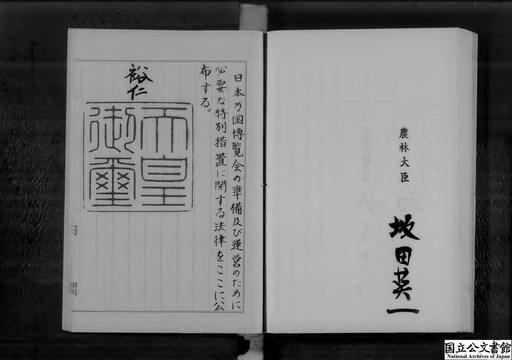 農林大臣
坂田英一
日本万国博覧会の準備及び運営のために
必要な特別措置に関する法律をここに公
布する。
裕仁
天皇
御璽
国立公文書館
National Archives of Japan